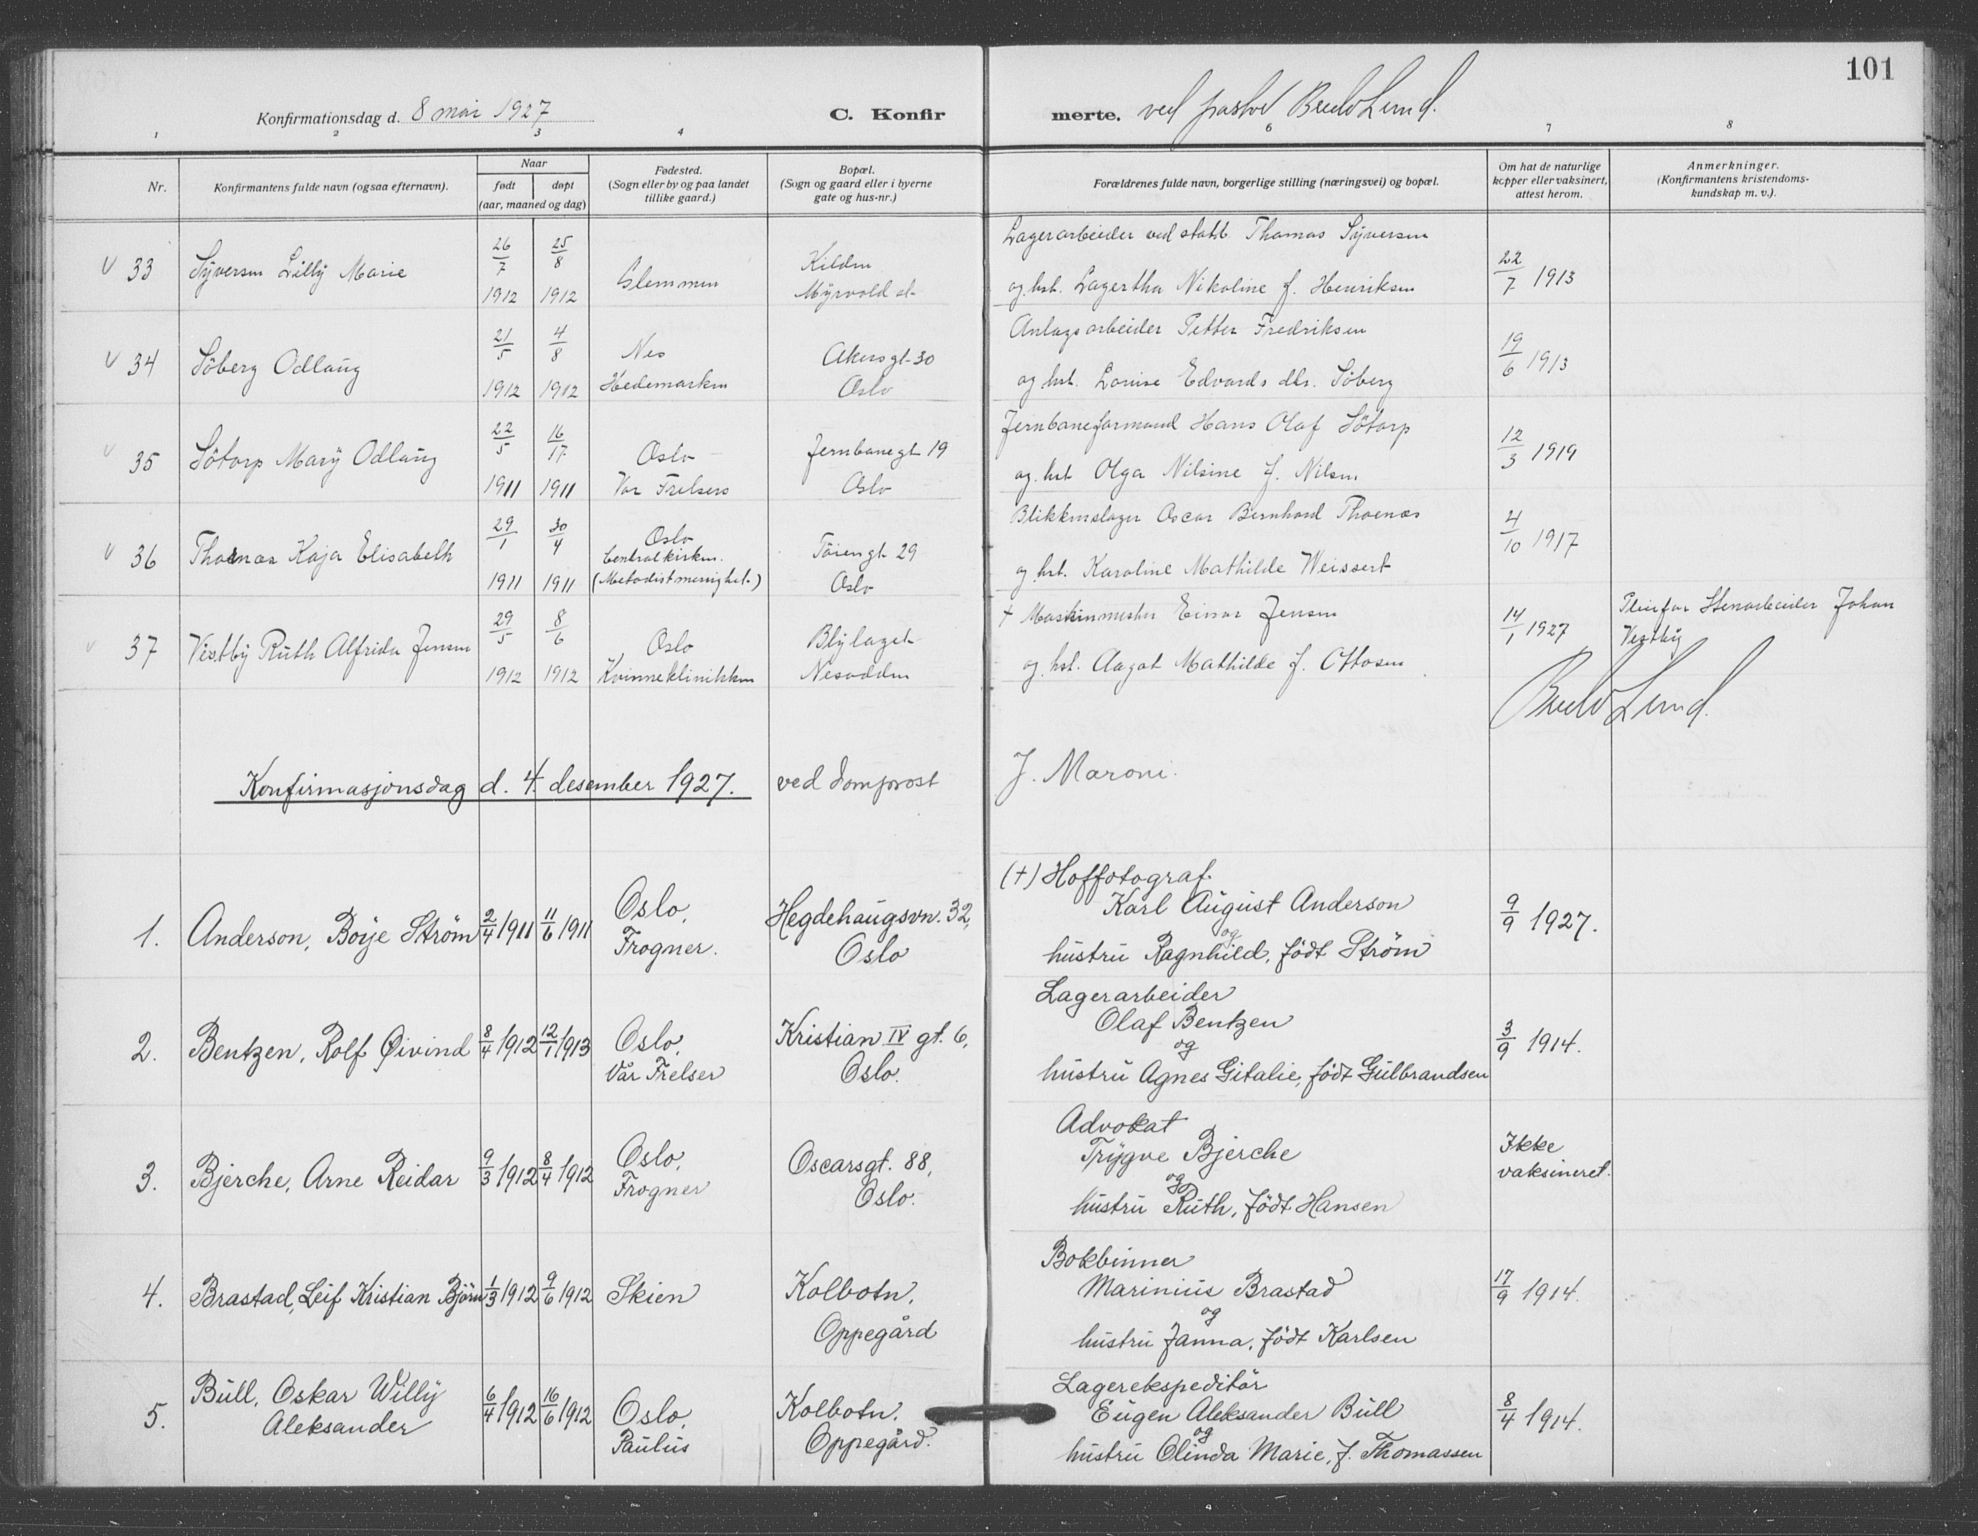 101
Konfirmationsdag d. 8 mai 1927
C. Konfir
merte. ved pastor Lund.
1 2 3 4 6 7 8
Nr.
Konfirmantens fulde navn (ogsaa efternavn).
Naar
født døpt
(aar, maaned og dag)
Fødested.
(Sogn eller by og paa landet
tillike gaard.)
Bopæl.
(Sogn og gaard eller i byerne
gate og hus-nr.)
Forældrenes fulde navn, borgerlige stilling (næringsvei) og bopæl.
Om hat de naturlige
kopper eller vaksinert,
attest herom.
Anmerkninger.
(Konfirmantens kristendoms-
kundskap m. v.).
v 33 Syversen Lilly Marie
26/7 1912
25/8 1912
Glemmen
Kilden
Myrvold st.
Lagerarbeider ved statsb. Thomas Syversen
og hst. Lagertha Nikoline f. Henriksen
22/7 1913
v 34 Söberg Odlaug
21/5 1912
4/8 1912
Nes
Hedemarken
Akersgt. 30
Oslo
Anlagsarbeider Petter Fredriksen
og hst. Louise Edvards dtr. Söberg
19/6 1913
v 35 Sötorp Mary Odlaug
22/5 1911
16/17 1911
Oslo
Vor Frelsers
Jernbanegt 19
Oslo
Jernbaneformand Hans Olaf Sötorp
og hst. Olga Nilsine f. Nilsen
12/3 1919
v 36 Thoenæs Kaja Elisabeth
29/1 1911
30/4 1911
Oslo
Centralkirken.
(Metodistmenighet.)
Töiengt 29
Oslo
Blikkenslager Oscar Bernhard Thoenæs
og hst. Karoline Mathilde Weissert
4/10 1917
v 37 Vestby Ruth Alfrida Jensen
29/5 1912
8/6 1912
Oslo
Kvinneklinikken
Blylaget
Nesodden
+ Maskinmester Einar Jensen
og hst. Aagot Mathilde f. Ottosen
14/1 1927
Pleiefar Stenarbeider Johan
Vestby
Lund.
Konfirmasjonsdag d. 4. desember 1927. ved domprost J. Maroni.
1. Anderson, Böye Ström
2/4 1911
11/6 1911
Oslo,
Frogner.
Hegdehaugsvn. 32,
Oslo
(+) Hoffotograf.
Karl August Anderson
og
hustru Ragnhild, født Strøm
9/9 1927.
2. Bentzen, Rolf Øivind
8/4 1912
12/1 1913
Oslo,
Vår Frelser
Kristian IV gt. 6,
Oslo.
Lagerarbeider
Olaf Bentzen
og
hustru Agnes Gitalie, født Gulbrandsen
3/9 1914.
3. Bjerche, Arne Reidar
9/3 1912
8/4 1912
Oslo,
Frogner
Oscarsgt. 88,
Oslo.
Advokat
Trygve Bjerche
og
hustru Ruth, født Hansen
Ikke
vaksineret.
4. Brastad, Leif Kristian Bjørn
1/3 1912
9/6 1912
Skien
Kolbotn,
Oppegård
Bokbinner
Marinius Brastad
og
hustru Janna, født Karlsen
17/9 1914.
5. Bull, Oskar Willy
Aleksander
6/4 1912
16/6 1912
Oslo,
Paulus
Kolbotn,
Oppegård.
Lagerekspeditör
Eugen Aleksander Bull
og
hustru Olinda Marie, f. Thomassen
8/4 1914.